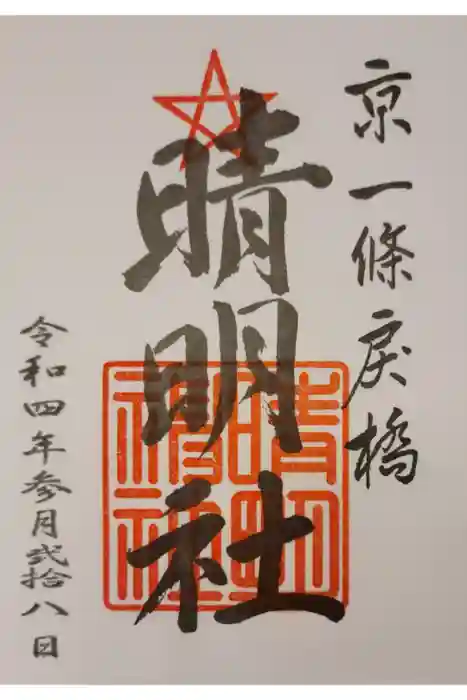 京一條戻橋
晴明社
晴明神社
令和四年参月弐拾八日